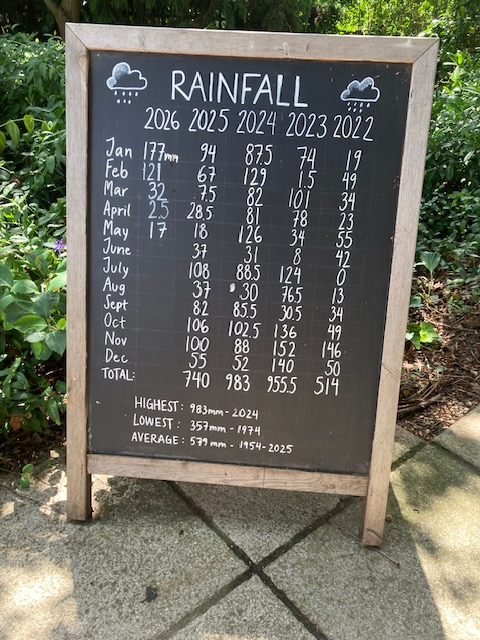 RAINFALL
2026 2025 2024 2023 2022
Jan 177mm 94 87.5 74 19
Feb 121 67 129 1.5 49
Mar 32 7.5 82 101 34
April 2.5 28.5 81 78 23
May 17 18 126 34 55
June 37 31 8 42
July 108 88.5 124 0
Aug 37 30 76.5 13
Sept 82 85.5 30.5 34
Oct 106 102.5 136 49
Nov 100 88 152 146
Dec 55 52 140 50
TOTAL: 740 983 955.5 514
HIGHEST: 983mm - 2024
LOWEST: 357mm - 1974
AVERAGE: 579mm - 1954-2025